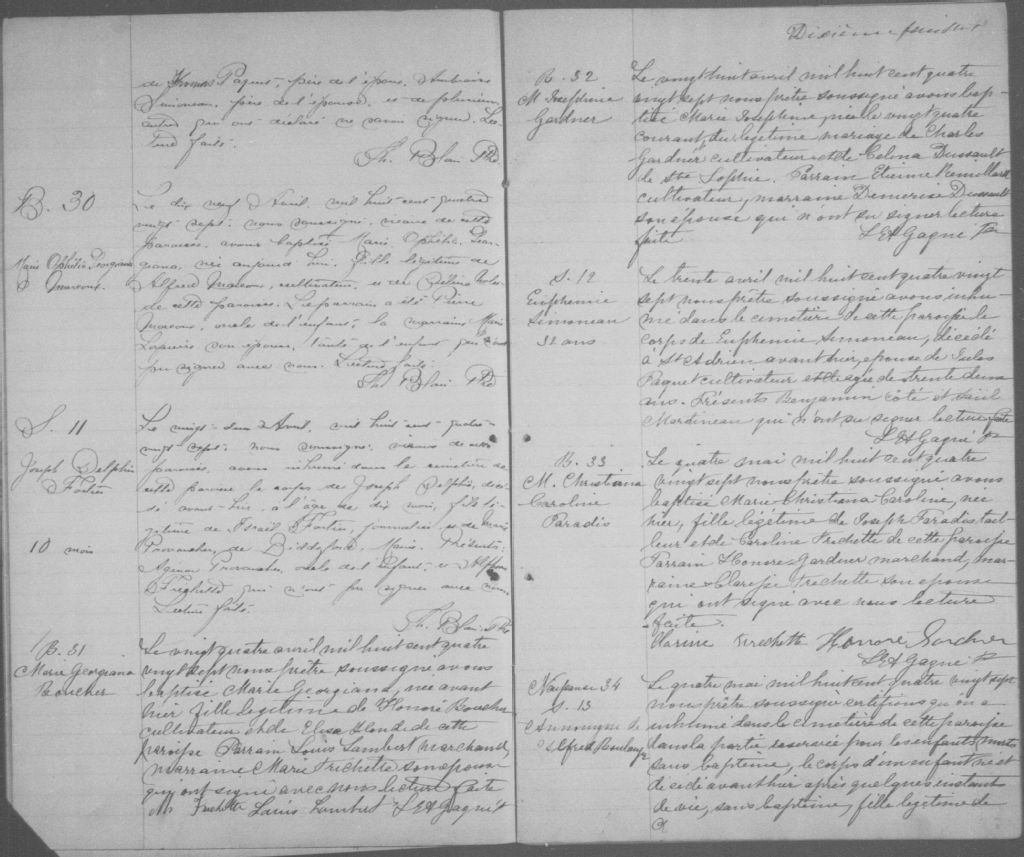 de Thomas Paquet, père de l'époux, d'Ambroise
Simoneau, père de l'épouse, et de plusieurs
autres qui ont déclaré ne savoir signer. Lec-
ture faite.
Th. Blais Ptre
B. 30
Marie Ophélie Georgiana
Marcoux
Le dix neuf d'Avril, mil huit cent quatre
vingt sept, nous soussigné, vicaire de cette
paroisse, avons baptisé Marie, Ophélie, Geor-
giana, née aujourd'hui, fille légitime de
Alfred Marcoux, cultivateur, et de Délina
de cette paroisse. Le parrain a été Pierre
Marcoux, oncle de l'enfant, la marraine Marie
son épouse, tante de l'enfant qui n'ont
pu signer avec nous. Lecture faite.
Th. Blais Ptre
S. 11
Joseph Delphis
Fortier
10 mois
Le vingt d'Avril, mil huit cent quatre
vingt sept, nous soussigné, vicaire de cette
paroisse, avons inhumé dans le cimetière de
cette paroisse le corps de Joseph Delphis, décé-
dé avant-hier, à l'âge de dix mois, fils lé-
gitime de Israël Fortier, journalier et de Marie
Provencher, de Biddeford, Maine. Présents
Provencher, oncle de l'enfant, et
Fréchette qui n'ont pu signer avec nous
Lecture faite.
Th. Blais Ptre
B. 31
Marie Georgiana
Boucher
Le vingt quatre avril mil huit cent quatre
vingt sept nous prêtre soussigné avons
baptisé Marie Georgiana, née avant
hier fille legitime de Honoré Boucher
cultivateur et de Elise Houde de cette
paroisse Parrain Louis Lambert marchand,
marraine Marie Frechette son épouse
qui ont signé avec nous lecture faite
M. Frechette Louis Lambert L H Gagné Ptr
Dixième feuillet
B. 32
M Josephine
Gardner
Le vingt huit avril mil huit cent quatre
vingt sept nous prêtre soussigné avons bap-
tisé Marie Josephine, née le vingt quatre
courant, du légitime mariage de Charles
Gardner cultivateur et de Celina Dussault
de Ste Sophie. Parrain Etienne Remillard
cultivateur, marraine Demerise Dussault
son épouse qui n'ont su signer lecture
faite
L H Gagné Ptr
S. 12
Euphemie
Simoneau
32 ans
Le trente avril mil huit cent quatre vingt
sept nous prêtre soussigné avons inhu-
mé dans le cimetière de cette paroisse le
corps de Euphemie Simoneau, décédé
à St Adrien avant hier, epouse de Jules
Paquet cultivateur et agée de trente deux
ans. Présents Benjamin Côté et
Martineau qui n'ont su signer lecture faite
L H Gagné Ptr
B. 33
M. Christiana
Caroline
Paradis
Le quatre mai mil huit cent quatre
vingt sept nous prêtre soussigné avons
baptisé Marie-Christiana-Caroline, née
hier, fille légitime de Joseph Paradis tail-
leur et de Caroline Frechette de cette paroisse
Parrain Honoré Gardner marchand, mar-
raine Clarisse Frechette son epouse
qui ont signé avec nous lecture
faite.
Frechette Honore Gardner
L H Gagné Ptr
34
S. 13
Annonyme de
Alfred
Le quatre mai mil huit cent quatre vingt sept
nous prêtre soussigné certifions qu'on a
inhumé dans le cimetière de cette paroisse
dans la partie reservée pour les enfants morts
sans baptème, le corps d'un enfant né et
decedé avant hier après quelques instant
de vie, sans baptème, fille legitime de